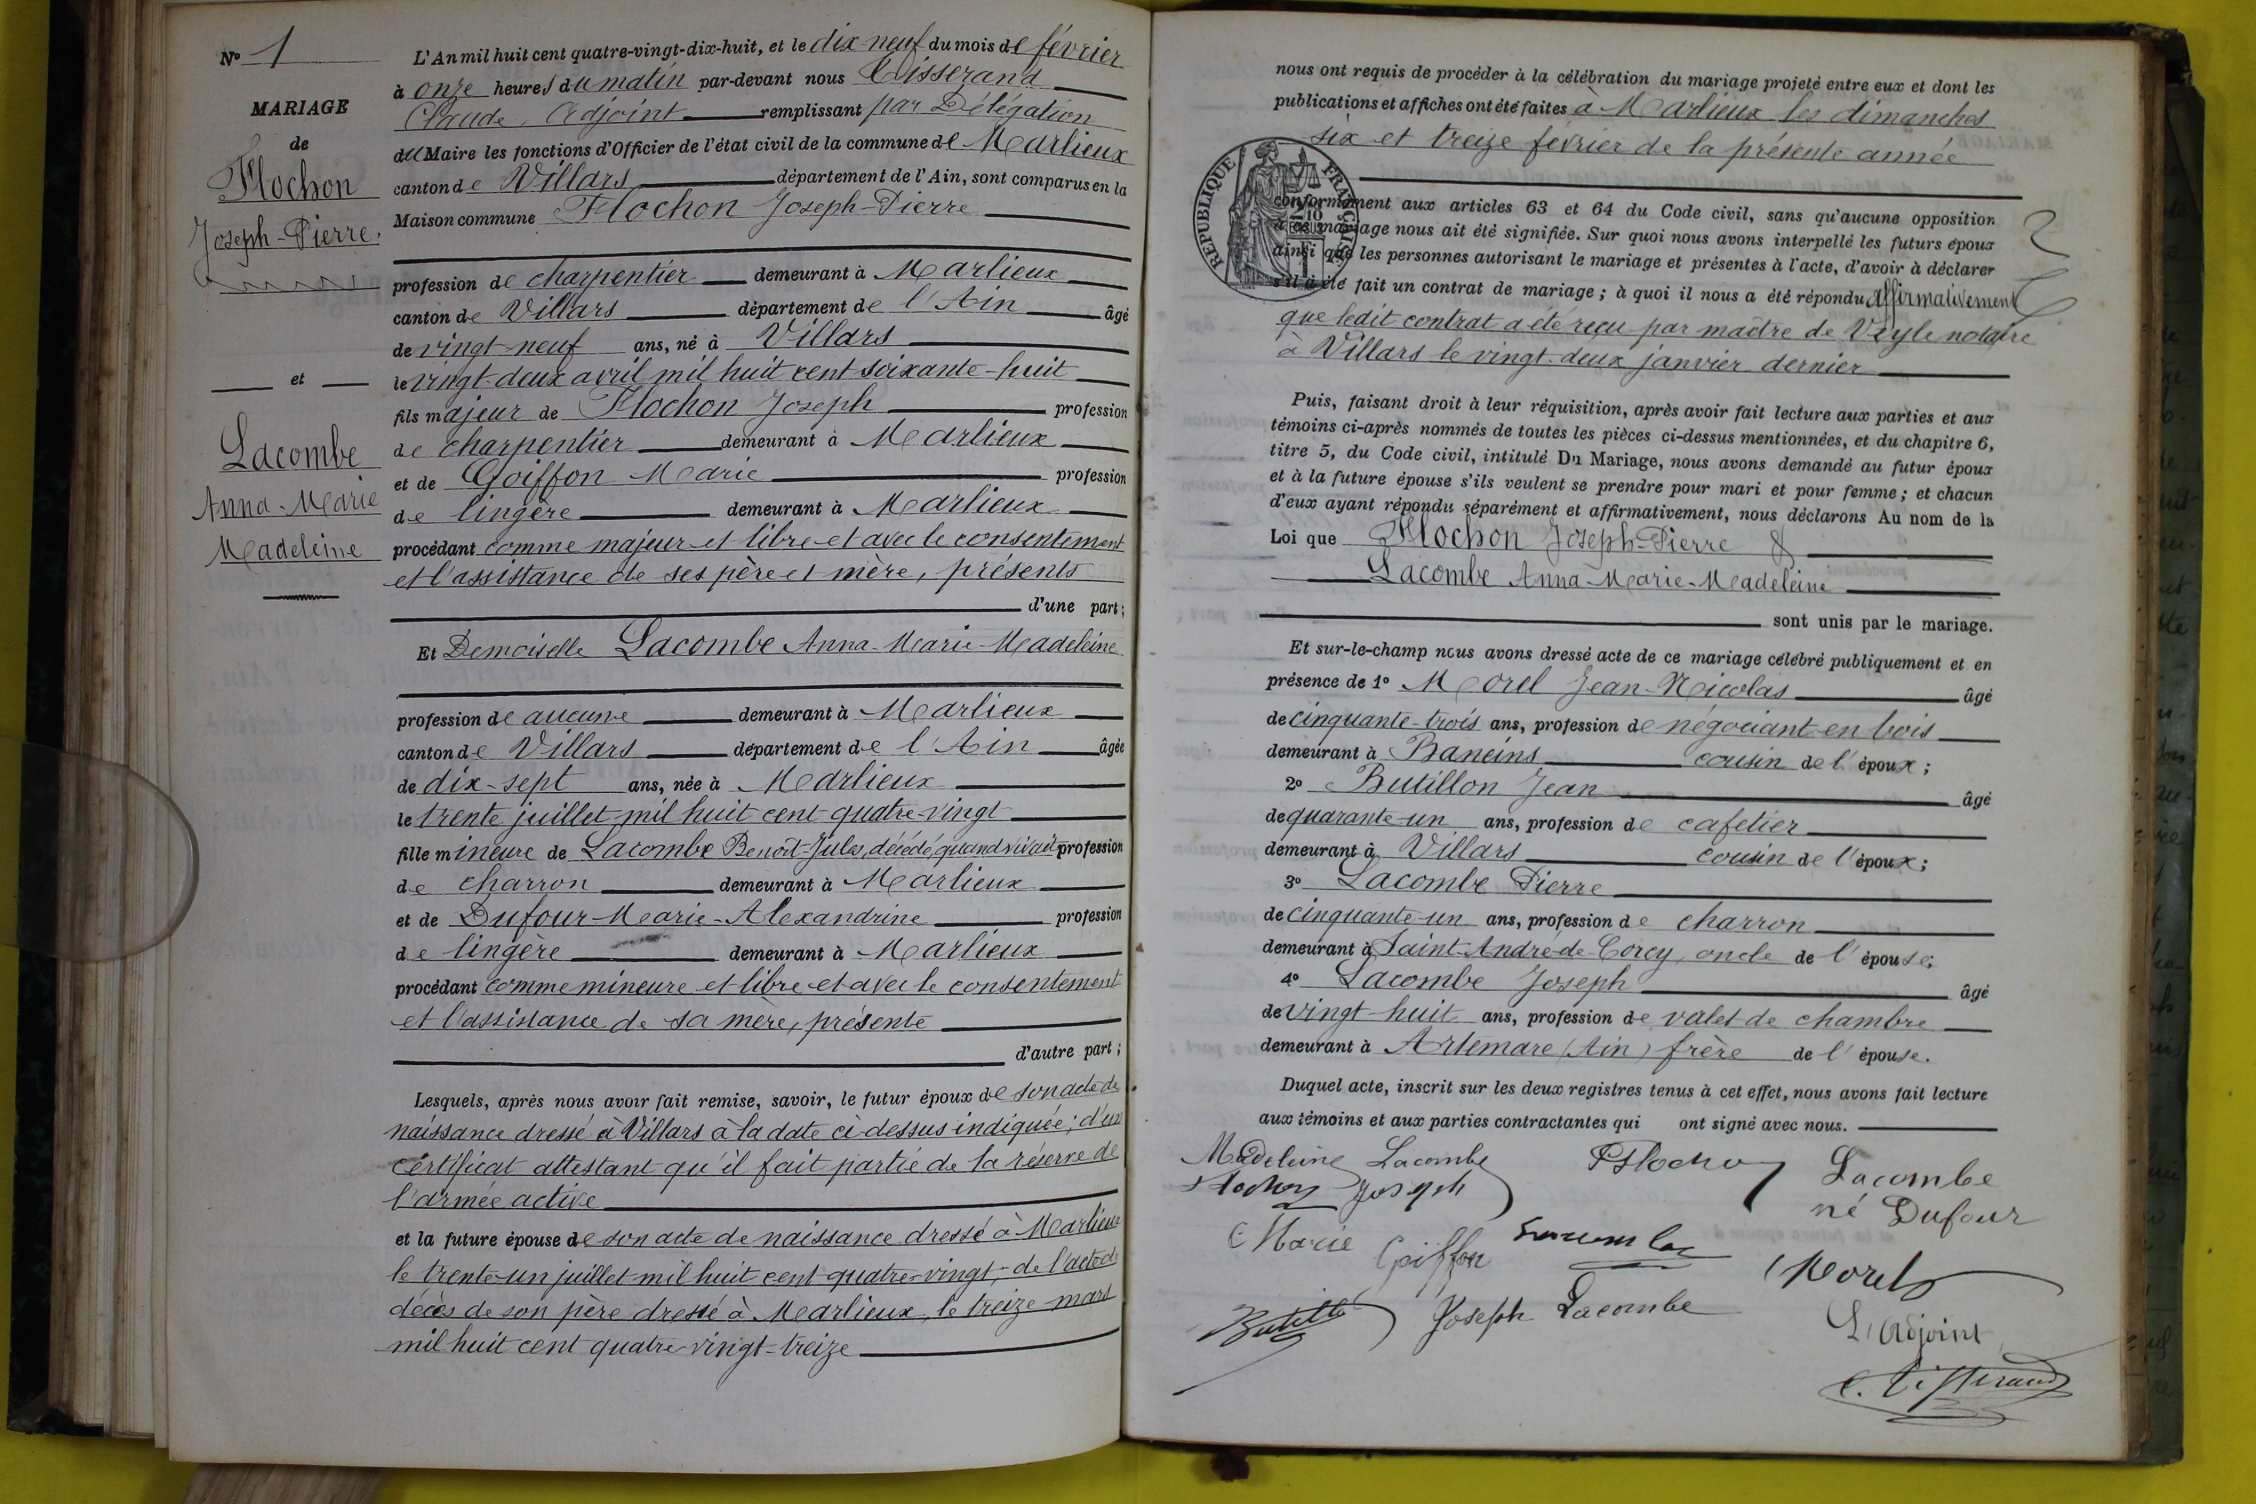 N° 1
MARIAGE
de
Flochon
Joseph-Pierre.
et
Lacombe
Anna-Marie
Madeleine
L'An mil huit cent quatre-vingt-dix-huit, et le dix-neuf du mois de février
à onze heures du matin par-devant nous Tisserand
Claude, Adjoint remplissant par Délégation
du Maire les fonctions d'Officier de l'état civil de la commune de Marlieux
canton de Villars département de l'Ain, sont comparus en la
Maison commune Flochon Joseph-Pierre
profession de charpentier demeurant à Marlieux
canton de Villars département de l'Ain âgé
de vingt-neuf ans, né à Villars
le vingt-deux avril mil huit cent soixante-huit
fils majeur de Flochon Joseph profession
de charpentier demeurant à Marlieux
et de Goiffon Marie profession
de lingère demeurant à Marlieux
procédant comme majeur et libre et avec le consentement
et l'assistance de ses père et mère, présents
d'une part;
Et Demoiselle Lacombe Anna-Marie-Madeleine
profession de aucune demeurant à Marlieux
canton de Villars département de l'Ain âgée
de dix-sept ans, née à Marlieux
le trente juillet mil huit cent quatre-vingt
fille mineure de Lacombe Benoît-Jules, décédé, quand vivait profession
de charron demeurant à Marlieux
et de Dufour-Marie-Alexandrine profession
de lingère demeurant à Marlieux
procédant comme mineure et libre et avec le consentement
et l'assistance de sa mère, présente
d'autre part;
Lesquels, après nous avoir fait remise, savoir, le futur époux de son acte de
naissance dressé à Villars à la date ci-dessus indiquée; d'un
certificat attestant qu'il fait partie de la réserve de
l'armée active
et la future épouse de son acte de naissance dressé à Marlieux
le trente-un juillet mil huit cent quatre-vingt; de l'acte de
décès de son père dressé à Marlieux, le treize mars
mil huit cent quatre-vingt-treize
nous ont requis de procéder à la célébration du mariage projeté entre eux et dont les
publications et affiches ont été faites à Marlieux les dimanches
six et treize fevrier de la présente année
RÉPUBLIQUE FRANÇAISE
conformément aux articles 63 et 64 du Code civil, sans qu'aucune opposition
à ce mariage nous ait été signifiée. Sur quoi nous avons interpellé les futurs époux
ainsi que les personnes autorisant le mariage et présentes à l'acte, d'avoir à déclarer
s'il a été fait un contrat de mariage; à quoi il nous a été répondu Affirmativement
que ledit contrat a été reçu par maître de Veyle notaire
à Villars le vingt-deux janvier dernier
Puis, faisant droit à leur réquisition, après avoir fait lecture aux parties et aux
témoins ci-après nommés de toutes les pièces ci-dessus mentionnées, et du chapitre 6,
titre 5, du Code civil, intitulé Du Mariage, nous avons demandé au futur époux
et à la future épouse s'ils veulent se prendre pour mari et pour femme; et chacun
d'eux ayant répondu séparément et affirmativement, nous déclarons Au nom de la
Loi que Flochon Joseph-Pierre &
Lacombe Anna-Marie-Madeleine
sont unis par le mariage.
Et sur-le-champ nous avons dressé acte de ce mariage célébré publiquement et en
présence de 1° Morel Jean-Nicolas âgé
de cinquante-trois ans, profession de négociant en bois
demeurant à Baneins cousin de l'époux;
2° Butillon Jean âgé
de quarante-un ans, profession de cafetier
demeurant à Villars cousin de l'époux;
3° Lacombe Pierre
de cinquante-un ans, profession de charron
demeurant à Saint-André-de-Corcy, oncle de l'épouse;
4° Lacombe Joseph âgé
de vingt-huit ans, profession de valet de chambre
demeurant à Artemare (Ain) frère de l'épouse.
Duquel acte, inscrit sur les deux registres tenus à cet effet, nous avons fait lecture
aux témoins et aux parties contractantes qui ont signé avec nous.
Madeleine Lacombe
Flochon Joseph
Lacombe
né Dufour
Marie Goiffon
Morel
Joseph Lacombe
L'Adjoint
C. Tisserand